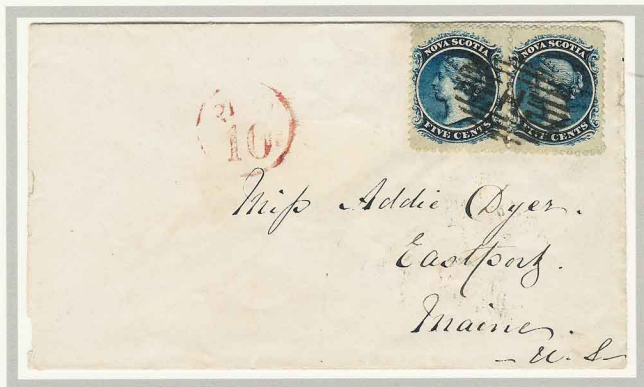 NOVA SCOTIA
FIVE CENTS
NOVA SCOTIA
CENTS
10
Miſs Addie Dyer.
Eastport.
Maine.
U. S